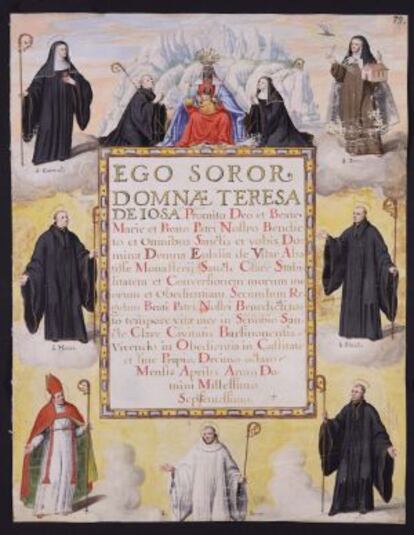 79.
EGO SOROR
DOMNÆ TERESA
DE IOSA Promito Deo et Beate
Marie et Beato Patri Nostro Benedic
to et Omnibus Sanctis et vobis Do
mina Donna Eulalia de Aba
tisse Monasterij Sanctæ Claræ Stabi
litatem et Conversionem morum me
orum et Obedientiam Secundum Re
gulam Beati Patris Nostri Benedicti to
to tempore vitæ meæ in Servitio San
ctæ Claræ Civitatis Barsinonensis
Vivendo in Obedientia in Castitate
et sine Proprio Decimo octavo
Mensis Aprilis Anno Do
mini Millessimo
Septcentessimo